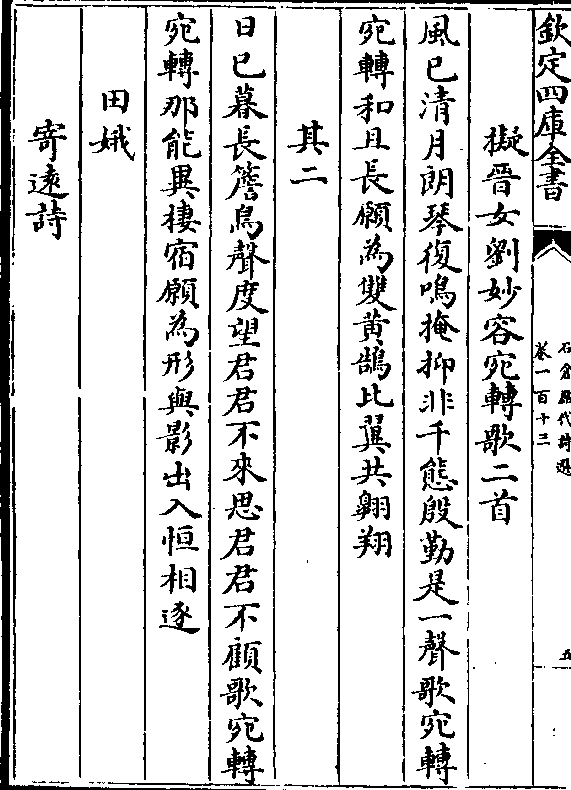 欽定四庫全書
石倉歷代詩選
卷一百十三
五
擬晉女劉妙容宛轉歌二首
風已清月朗琴復鳴掩抑非千態殷勤是一聲歌宛轉
宛轉和且長願為雙黃鵠比翼共翺翔
其二
日已暮長簷鳥聲度望君君不來思君君不顧歌宛轉
宛轉那能異棲宿願為形與影出入恒相逐
田娥
寄遠詩